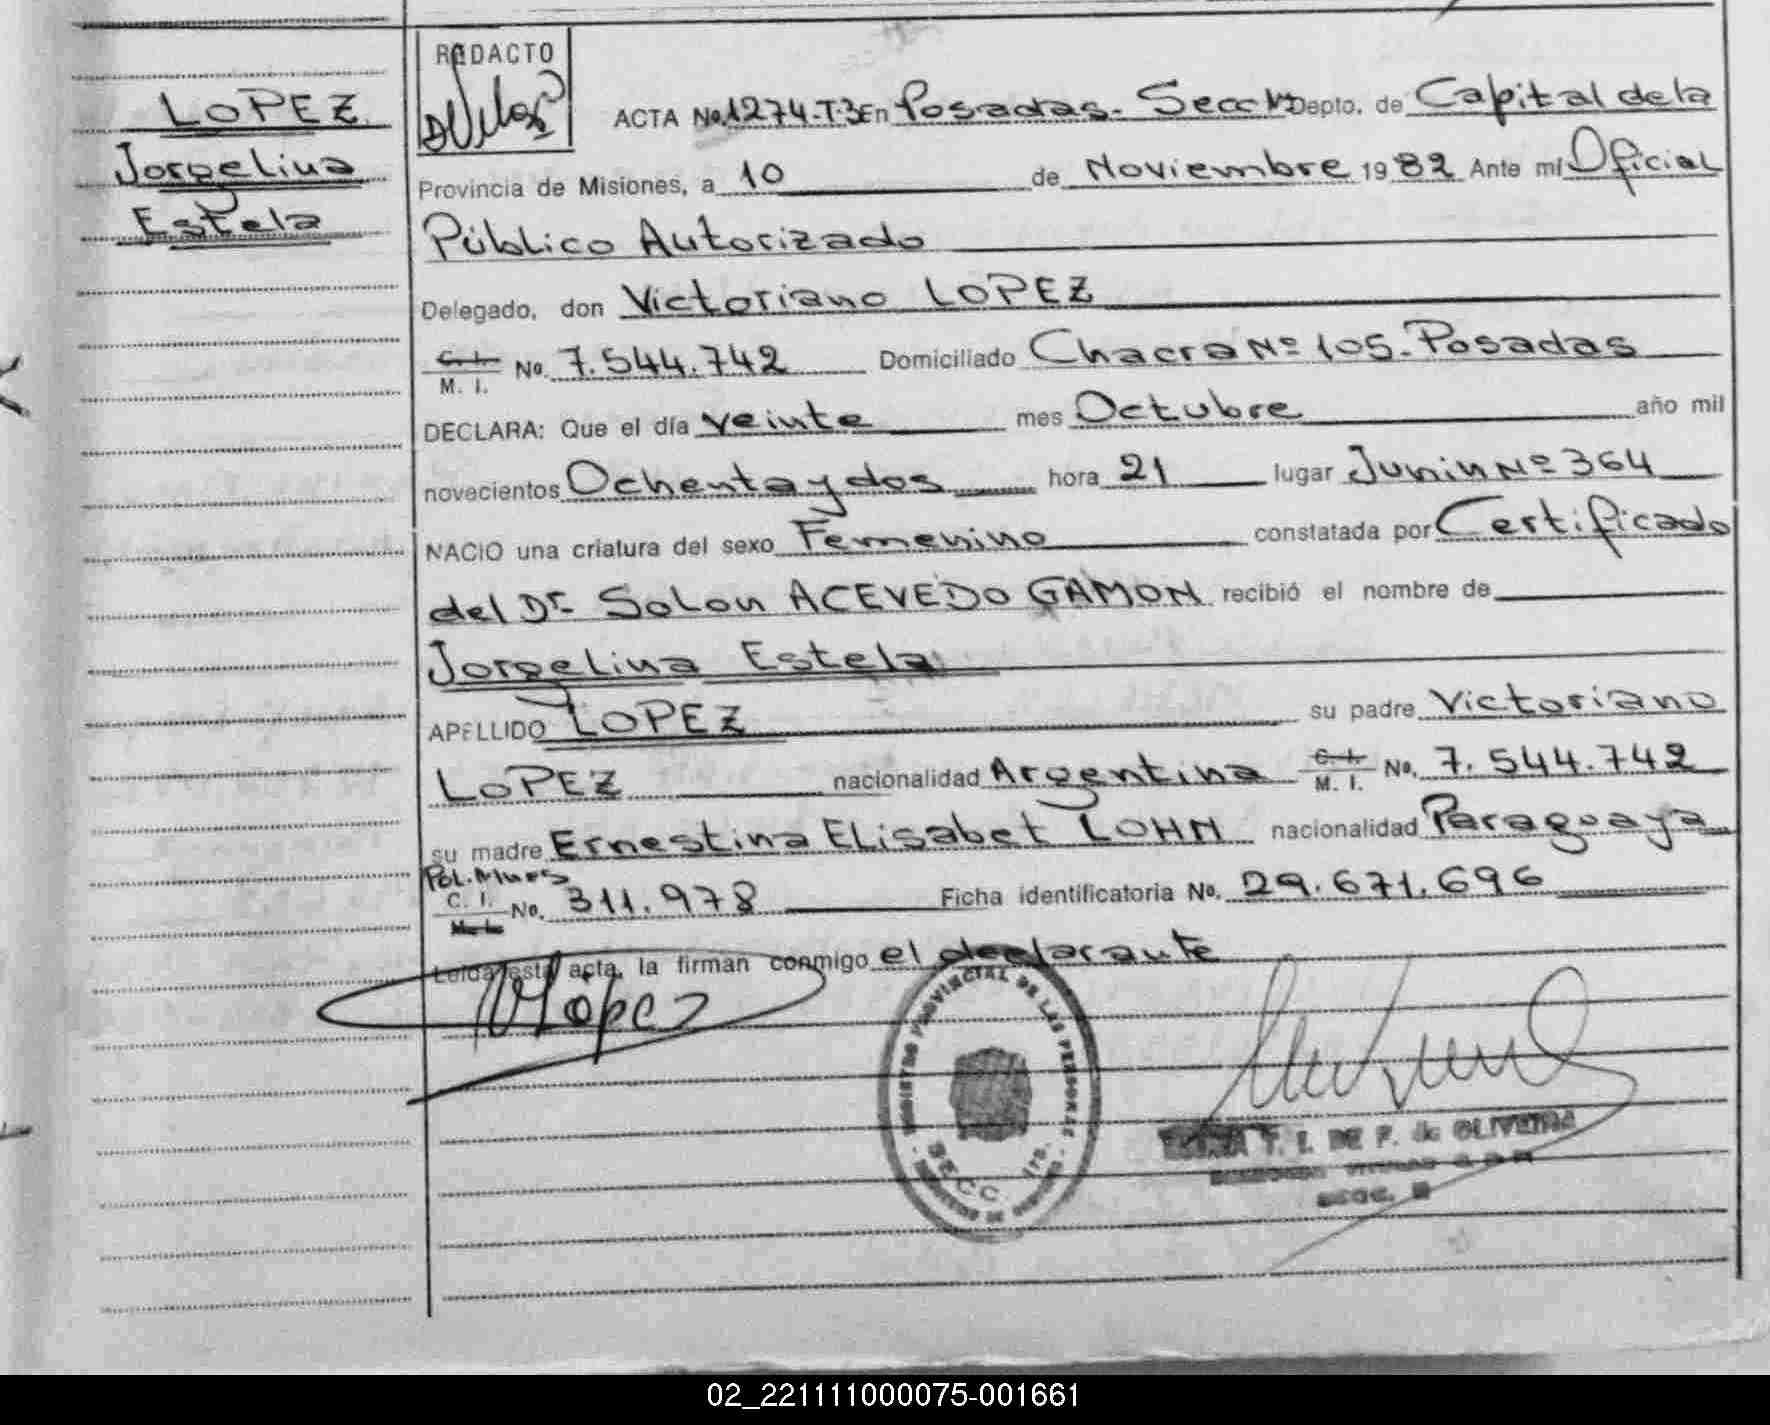 LOPEZ
Jorgelina
Estela
REDACTO
ACTA No. 1274-T-3 En Posadas - Secc Depto. de Capital de la
Provincia de Misiones, a 10 de Noviembre 1982 Ante mi Oficial
Público Autorizado
Delegado, don Victoriano LOPEZ
C. I.
M. I. No. 7.544.742 Domiciliado Chacra Nº 105. Posadas
DECLARA: Que el día veinte mes Octubre año mil
novecientos Ochenta y dos hora 21 lugar Junin Nº 364
NACIO una criatura del sexo Femenino constatada por Certificado
del Dr. Solon ACEVEDO GAMON recibió el nombre de
Jorgelina Estela
APELLIDO LOPEZ su padre Victoriano
LOPEZ nacionalidad Argentina C. I. M. I. No. 7.544.742
su madre Ernestina ELisabet LOHN nacionalidad Paraguaya
Pol. Mnes
C. I. M. I. No. 311.978 Ficha identificatoria No. 29.671.696
Leida esta acta, la firman conmigo el declarante
VLopez
REGISTRO PROVINCIAL DE LAS PERSONAS
SECC.
T. I. DE P. de OLIVEIRA
SECC.
02_221111000075-001661